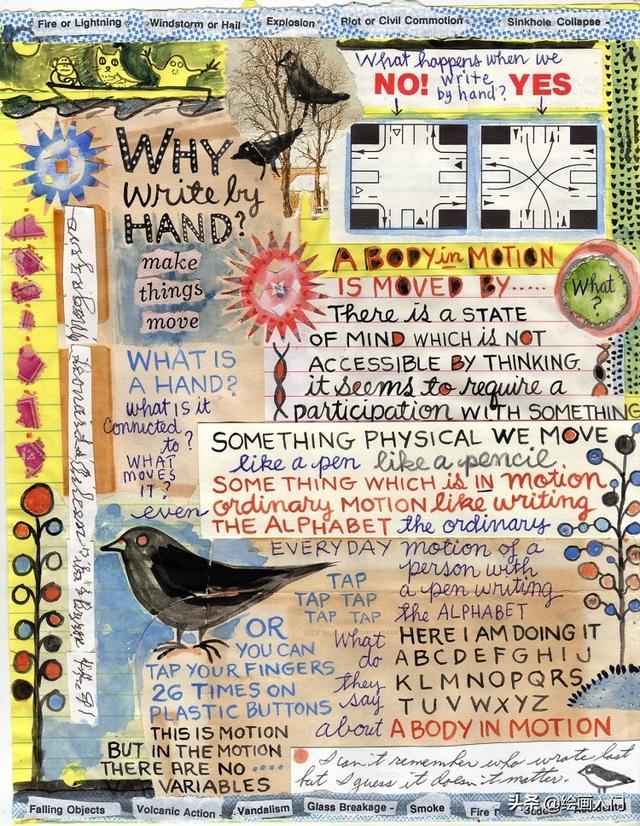 Fire or Lightning
Windstorm or Hail
Explosion
Riot or Civil Commotion
Sinkhole Collapse
What happens when we
write
by hand?
NO!
YES
WHY
Write by
HAND?
make
things
move
A BODY in MOTION
IS MOVED BY.....
What
?
There is a STATE
OF MIND WHICH is NOT
ACCESSIBLE BY THINKING.
it seems to require a
participation WITH SOMETHING
WHAT IS
A HAND?
what is it
Connected
to?
WHAT
MOVES
IT?
even
SOMETHING PHYSICAL WE MOVE
like a pen like a pencil
SOME THING WHICH is IN motion
ordinary MOTION like writing
THE ALPHABET the ordinary
EVERYDAY motion of a
person with
a pen writing
the ALPHABET
TAP
TAP TAP TAP
TAP TAP TAP
OR
YOU CAN
TAP YOUR FINGERS
26 TIMES ON
PLASTIC BUTTONS
What
do
they
say
about
HERE I AM DOING IT
A B C D E F G H I J
K L M N O P Q R S
T U V W X Y Z
A BODY IN MOTION
THIS IS MOTION
BUT IN THE MOTION
THERE ARE NO ....
VARIABLES
I can't remember who wrote last
but I guess it doesn't matter.
Falling Objects
Volcanic Action
Vandalism
Glass Breakage
Smoke
头条 @绘画入门